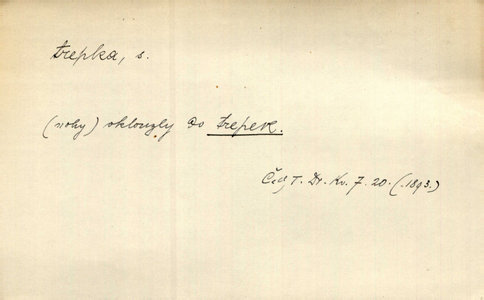 trepka, s.
(nohy) oklouzly do trepek.
Čech T. Dr. Kv. 7. 20. (1893.)